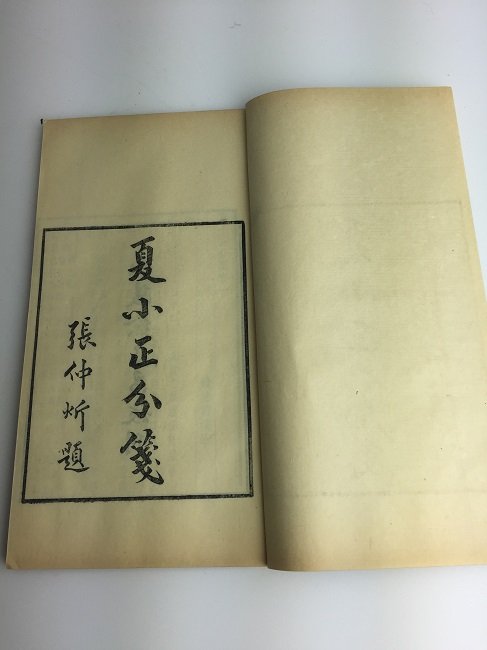 夏小正分箋
張仲炘題